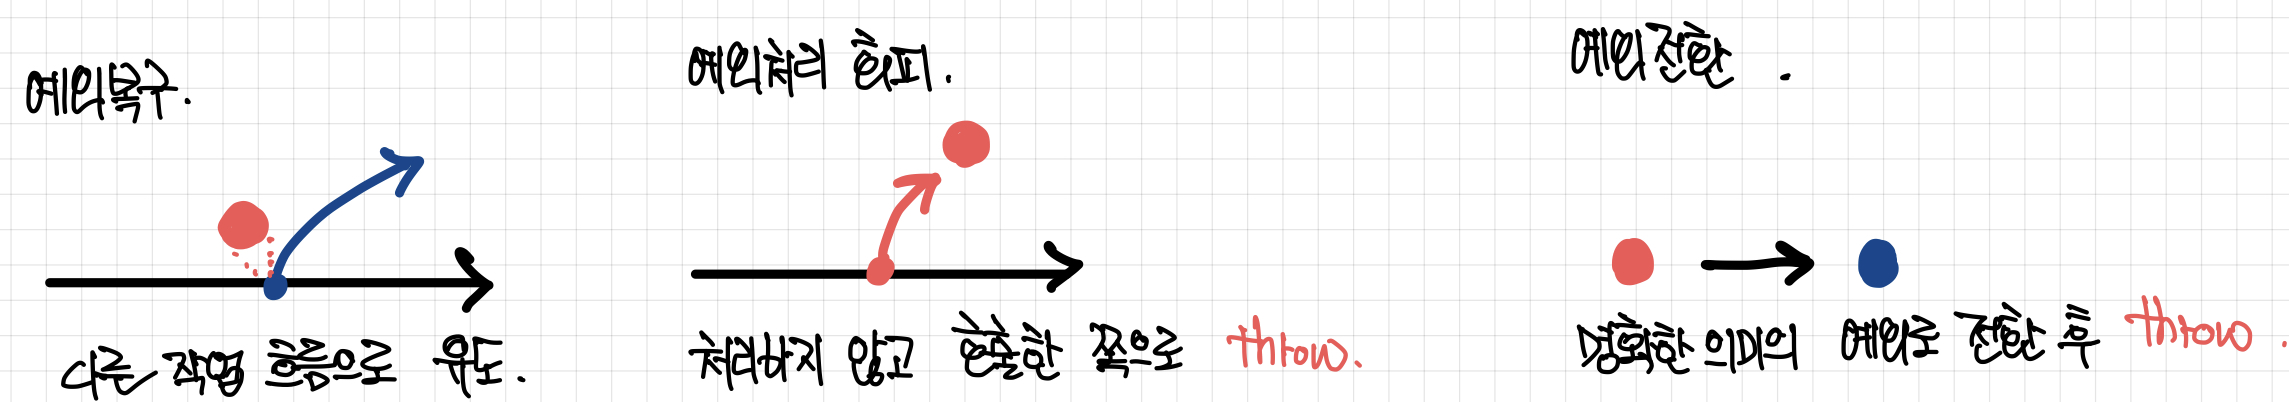 예외복구.
다른 작업 흐름으로 유도.
예외처리 회피.
처리하지 않고 호출한 쪽으로 throw.
예외전환.
명확한 의미의 예외로 전환 후 throw.